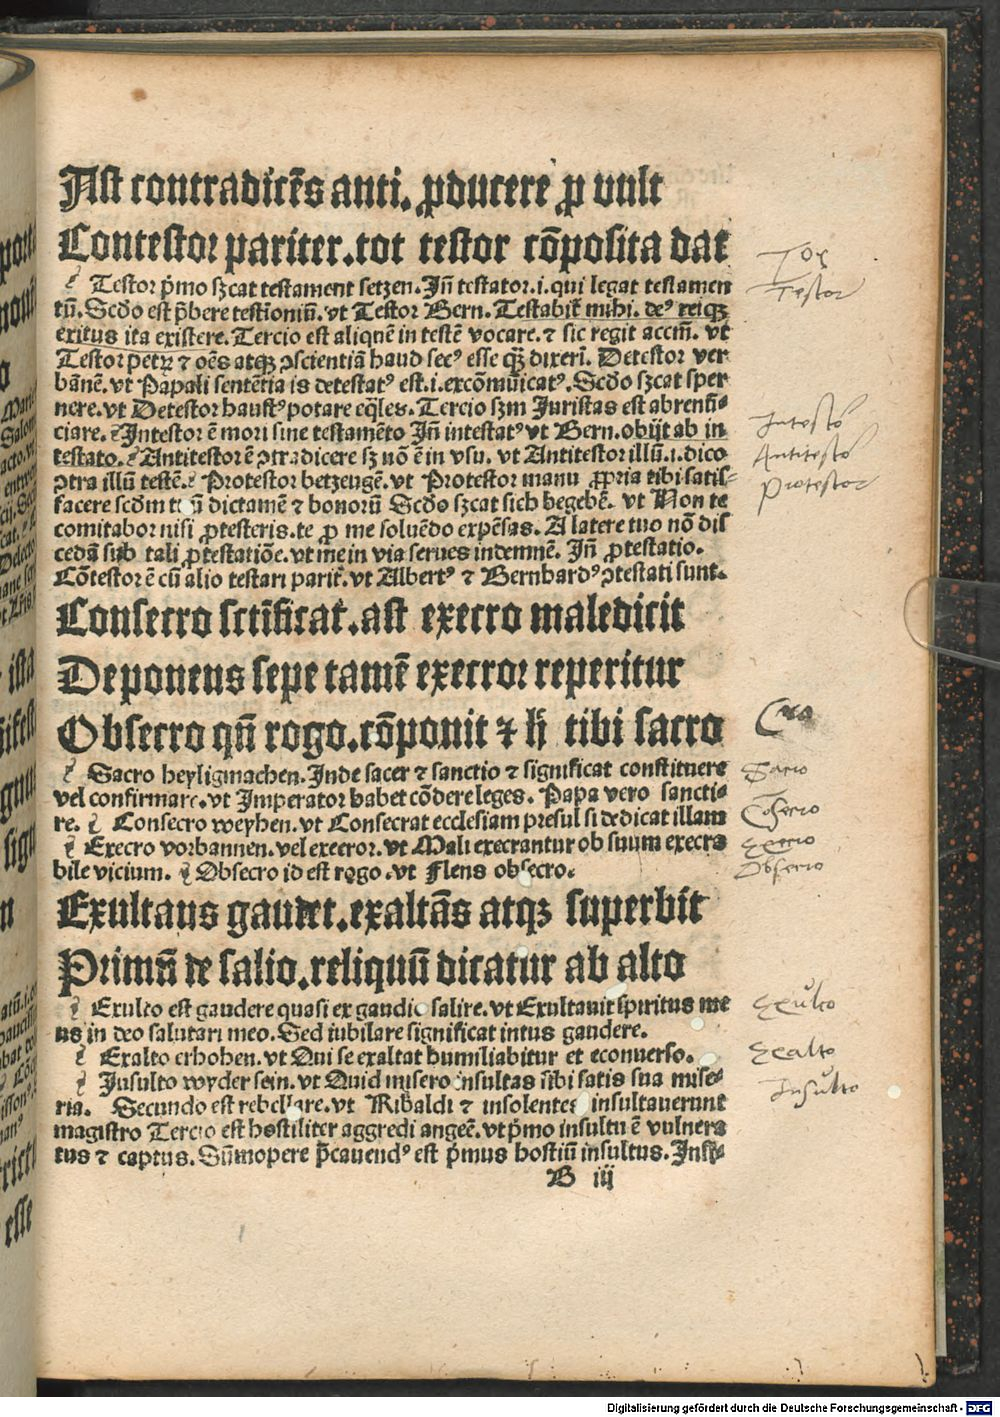 Ast contradicēs anti. ꝓducere ꝓ vult
Contestor pariter.tot testor cōposita dat
Testor p̄mo sꝫcat testament setzen. Jn̄ testator.i.qui legat testamen
tū. Scďo est p̄bere testioniū. vt Testor Bern. Testabit᷑ mihi. deꝰ reiqꝫ
exitus ita existere. Tercio est aliquē in testē vocare. ⁊ sic regit accm̄. vt
Testor petꝝ ⁊ oēs atqꝫ ꝯscientiā haud secꝰ esse qꝫ dixeri. Detestor ver
bānē. vt Papali sentētia is detestatꝰ est.i.excōmūicatꝰ. Scďo sꝫcat sper
nere.vt Detestor haustꝰ potare eq̄les. Tercio sꝫm Juristas est abrenū-
ciare. Jntestor ē mori sine testamēto Jn̄ intestatꝰ vt Bern. obijt ab in
testato. Antitestor ē ꝯtradicere sꝫ nō ē in vsu. vt Antitestor illū.i.dico
ꝯtra illū testē. Protestor betzeugē. vt Protestor manu ꝓpria tibi satis-
facere scďm tuū dictamē ⁊ bonorū Scďo sꝫcat sich begebē. vt Non te
comitabor nisi ꝓtesteris.te ꝓ me soluēdo expēsas. A latere tuo nō dis
cedā sub tali ꝓtestatiōe.vt me in via serues indemnē. Jn̄ ꝓtestatio.
Cōtestor ē cū alio testari parit᷑. vt Albertꝰ ⁊ Bernhardꝰ ꝯtestati sunt.
Consecro sctīficat.ast execro maledicit
Deponens sepe tamē execror reperitur
Obsecro qn̄ rogo.cōponit ⁊ h̄ tibi sacro
Sacro heyligmachen. Jnde sacer ⁊ sanctio ⁊ significat constituere
vel confirmare.vt Jmperator habet cōdere leges. Papa vero sancti-
re. Consecro weyhen. vt Consecrat ecclesiam presul si dedicat illam
Execro vorbannen. vel execror. vt Mali execrantur ob suum execra
bile vicium. Obsecro id est rogo.vt Flens obsecro.
Exultans gaudet.exaltās atqꝫ superbit
Primū de salio.reliquū dicatur ab alto
Exulto est gaudere quasi ex gaudio salire. vt Exultauit spiritus me
us in deo salutari meo. Sed iubilare significat intus gaudere.
Exalto erhohen. vt Qui se exaltat humiliabitur et econuerso.
Jnsulto wyder sein. vt Quid misero insultas sibi satis sua mise-
ria. Secundo est rebellare.vt Ribaldi ⁊ insolentes insultauerunt
magistro Tercio est hostiliter aggredi angeē. vt p̄mo insultu ē vulnera
tus ⁊ captus. Sūmopere p̄cauendꝰ est p̄mus hostiū insultus. Jnsu-
B iij
Tor
Testor
Jntesto
Antitesto
Protestor
Cro
Sacro
Cōsecro
Execro
Obsecro
Exulto
Exalto
Jnsulto
Digitalisierung gefördert durch die Deutsche Forschungsgemeinschaft - DFG